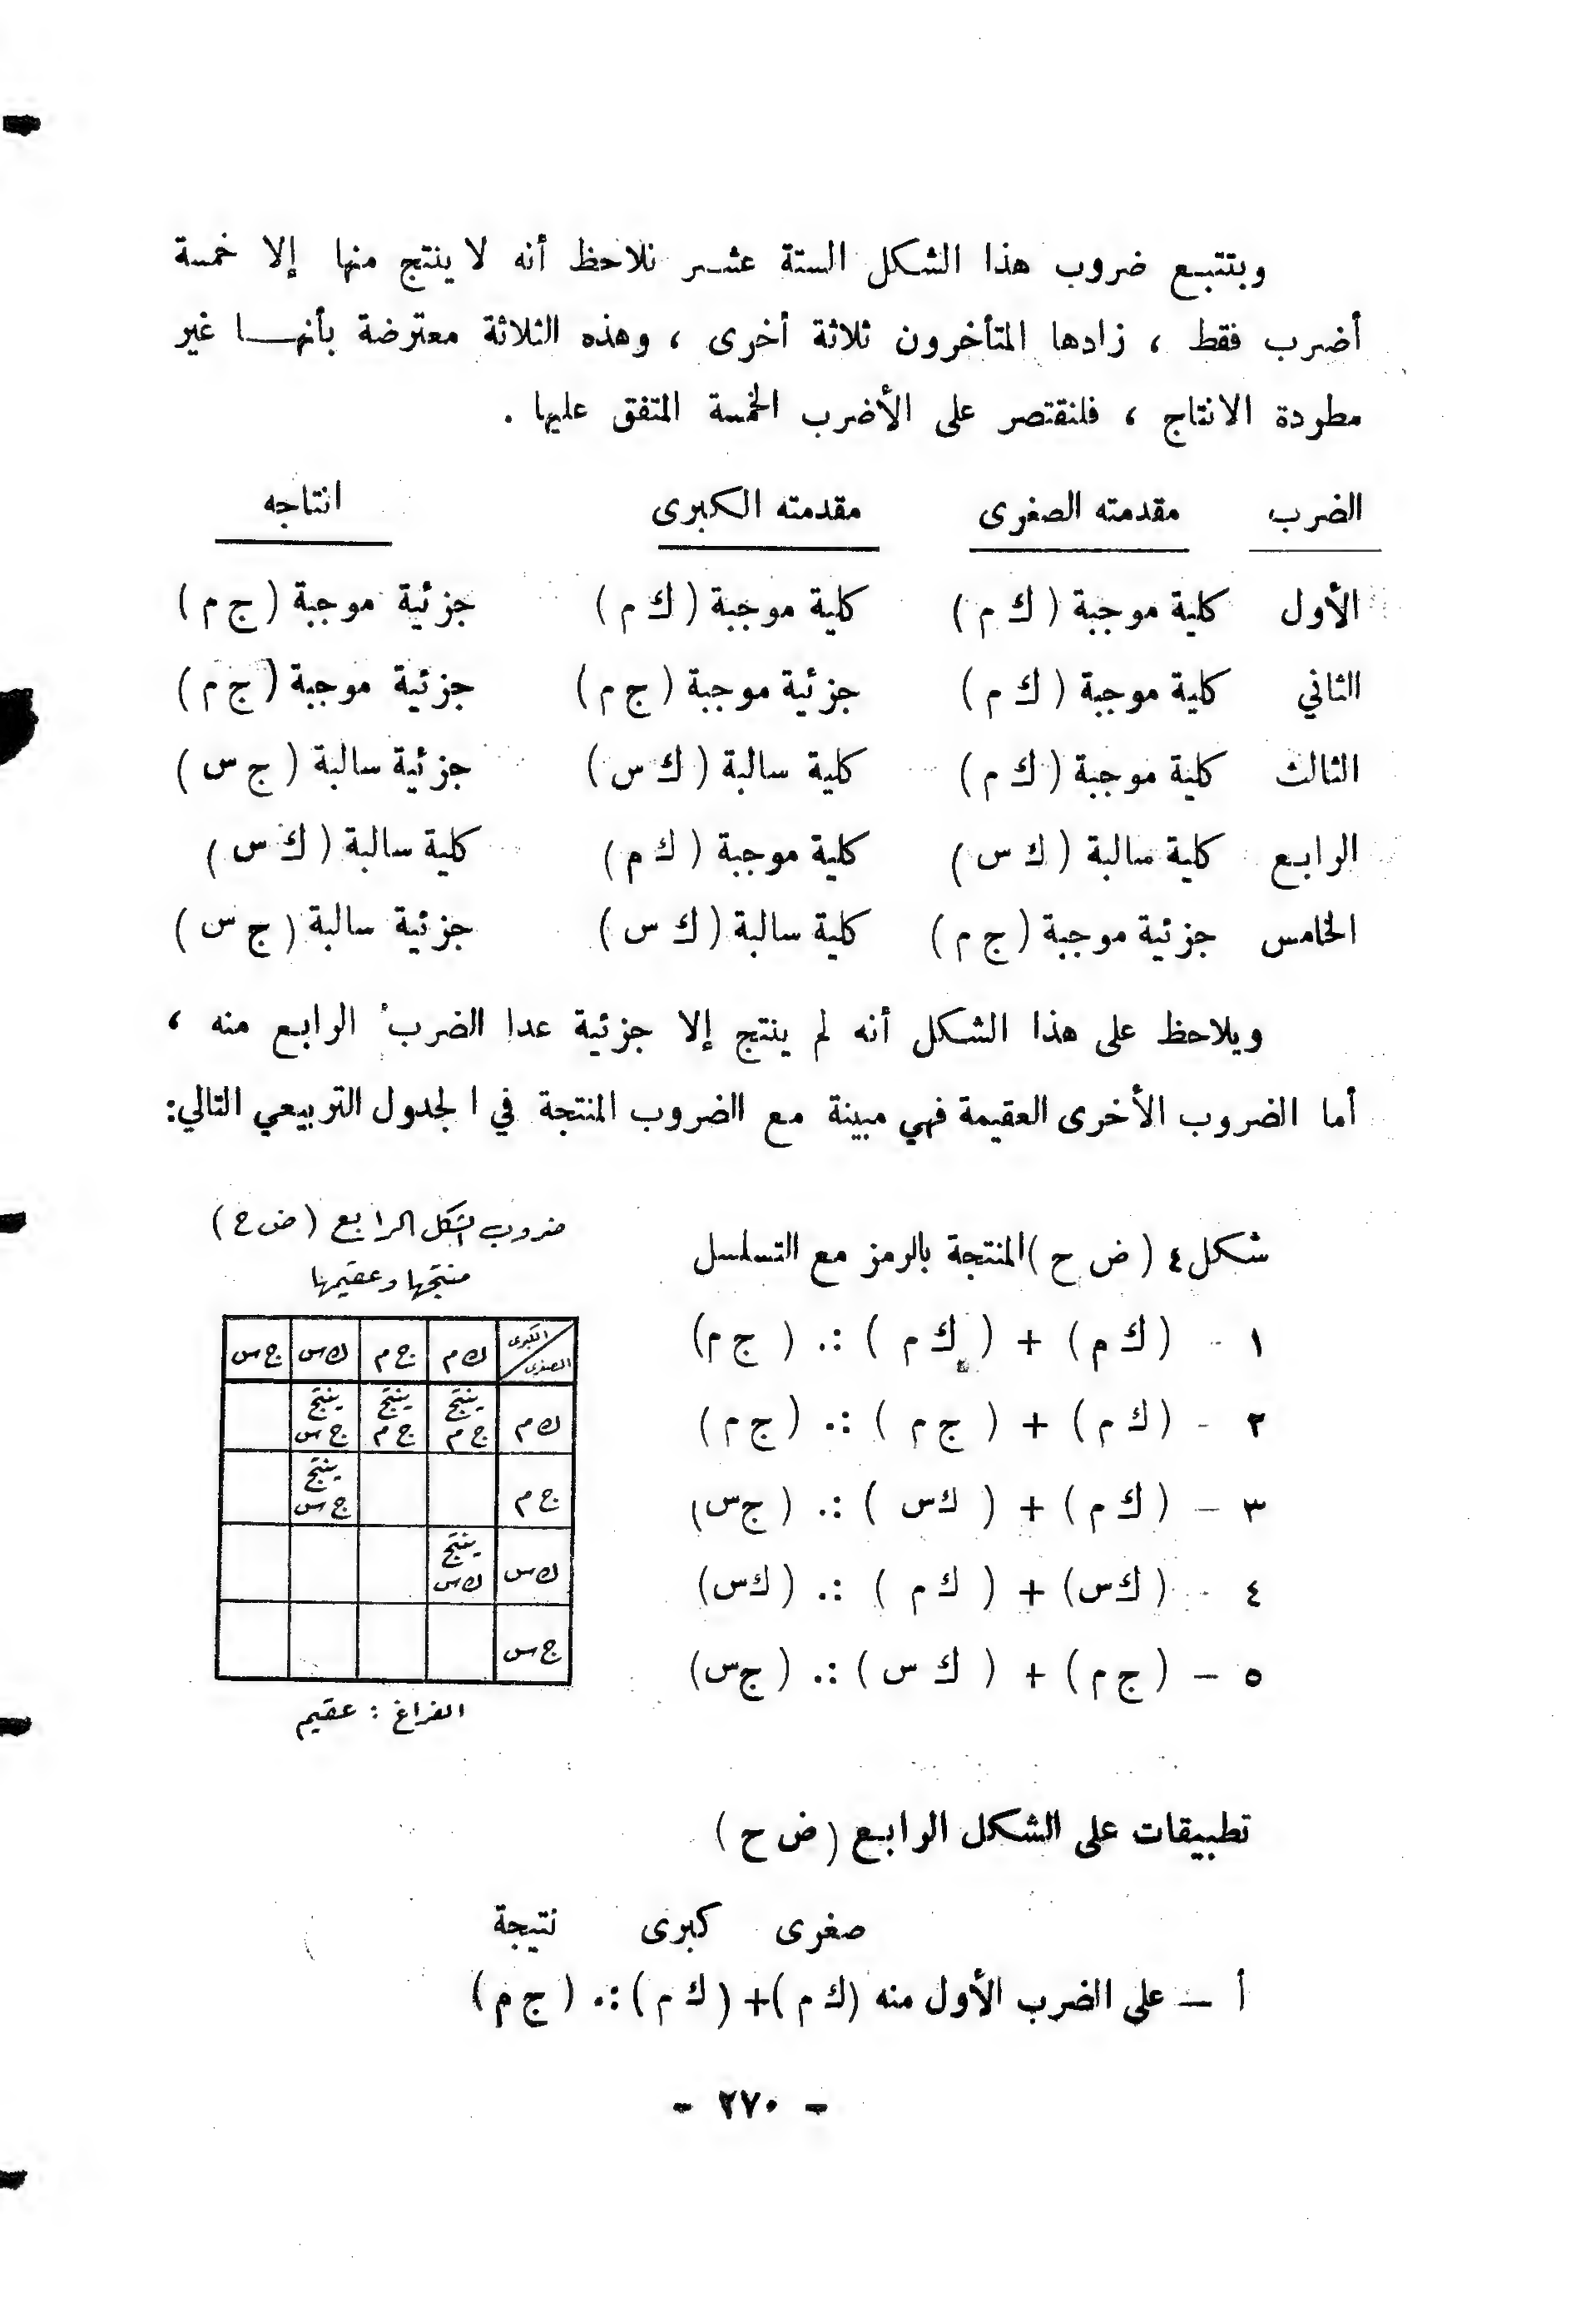 وبتتبع ضروب هذا الشكل الستة عشر نلاحظ أنه لا ينتج منها إلا خمسة
أضرب فقط ، زادها المتأخرون ثلاثة أخرى ، وهذه الثلاثة معترضة بأنها غير
مطردة الانتاج ، فلنقتصر على الأضرب الخمسة المتفق عليها .
الضرب مقدمته الصغرى مقدمته الكبرى انتاجه
الأول كلية موجبة ( ك م ) كلية موجبة ( ك م ) جزئية موجبة ( ج م )
الثاني كلية موجبة ( ك م ) جزئية موجبة ( ج م ) جزئية موجبة ( ج م )
الثالث كلية موجبة ( ك م ) كلية سالبة ( ك س ) جزئية سالبة ( ج س )
الرابع كلية سالبة ( ك س ) كلية موجبة ( ك م ) كلية سالبة ( ك س )
الخامس جزئية موجبة ( ج م ) كلية سالبة ( ك س ) جزئية سالبة ( ج س )
ويلاحظ على هذا الشكل أنه لم ينتج إلا جزئية عدا الضرب الرابع منه ،
أما الضروب الأخرى العقيمة فهي مبينة مع الضروب المنتجة في الجدول التربيعي التالي:
شكل ٤ ( ض ح ) المنتجة بالرمز مع التسلسل
١ - ( ك م ) + ( ك م ) ∴ ( ج م )
٢ - ( ك م ) + ( ج م ) ∴ ( ج م )
٣ - ( ك م ) + ( ك س ) ∴ ( ج س )
٤ - ( ك س ) + ( ك م ) ∴ ( ك س )
٥ - ( ج م ) + ( ك س ) ∴ ( ج س )
ضروب الشكل الرابع ( ض ح )
منتجها وعقيمها
الكبرى / الصغرى ك م ج م ك س ج س
ك م ينتج ج م ينتج ج م ينتج ج س
ج م ينتج ج س
ك س ينتج ك س
ج س
الفراغ : عقيم
تطبيقات على الشكل الرابع ( ض ح )
صغرى كبرى نتيجة
أ - على الضرب الأول منه ( ك م ) + ( ك م ) ∴ ( ج م )
- ٢٧٠ -